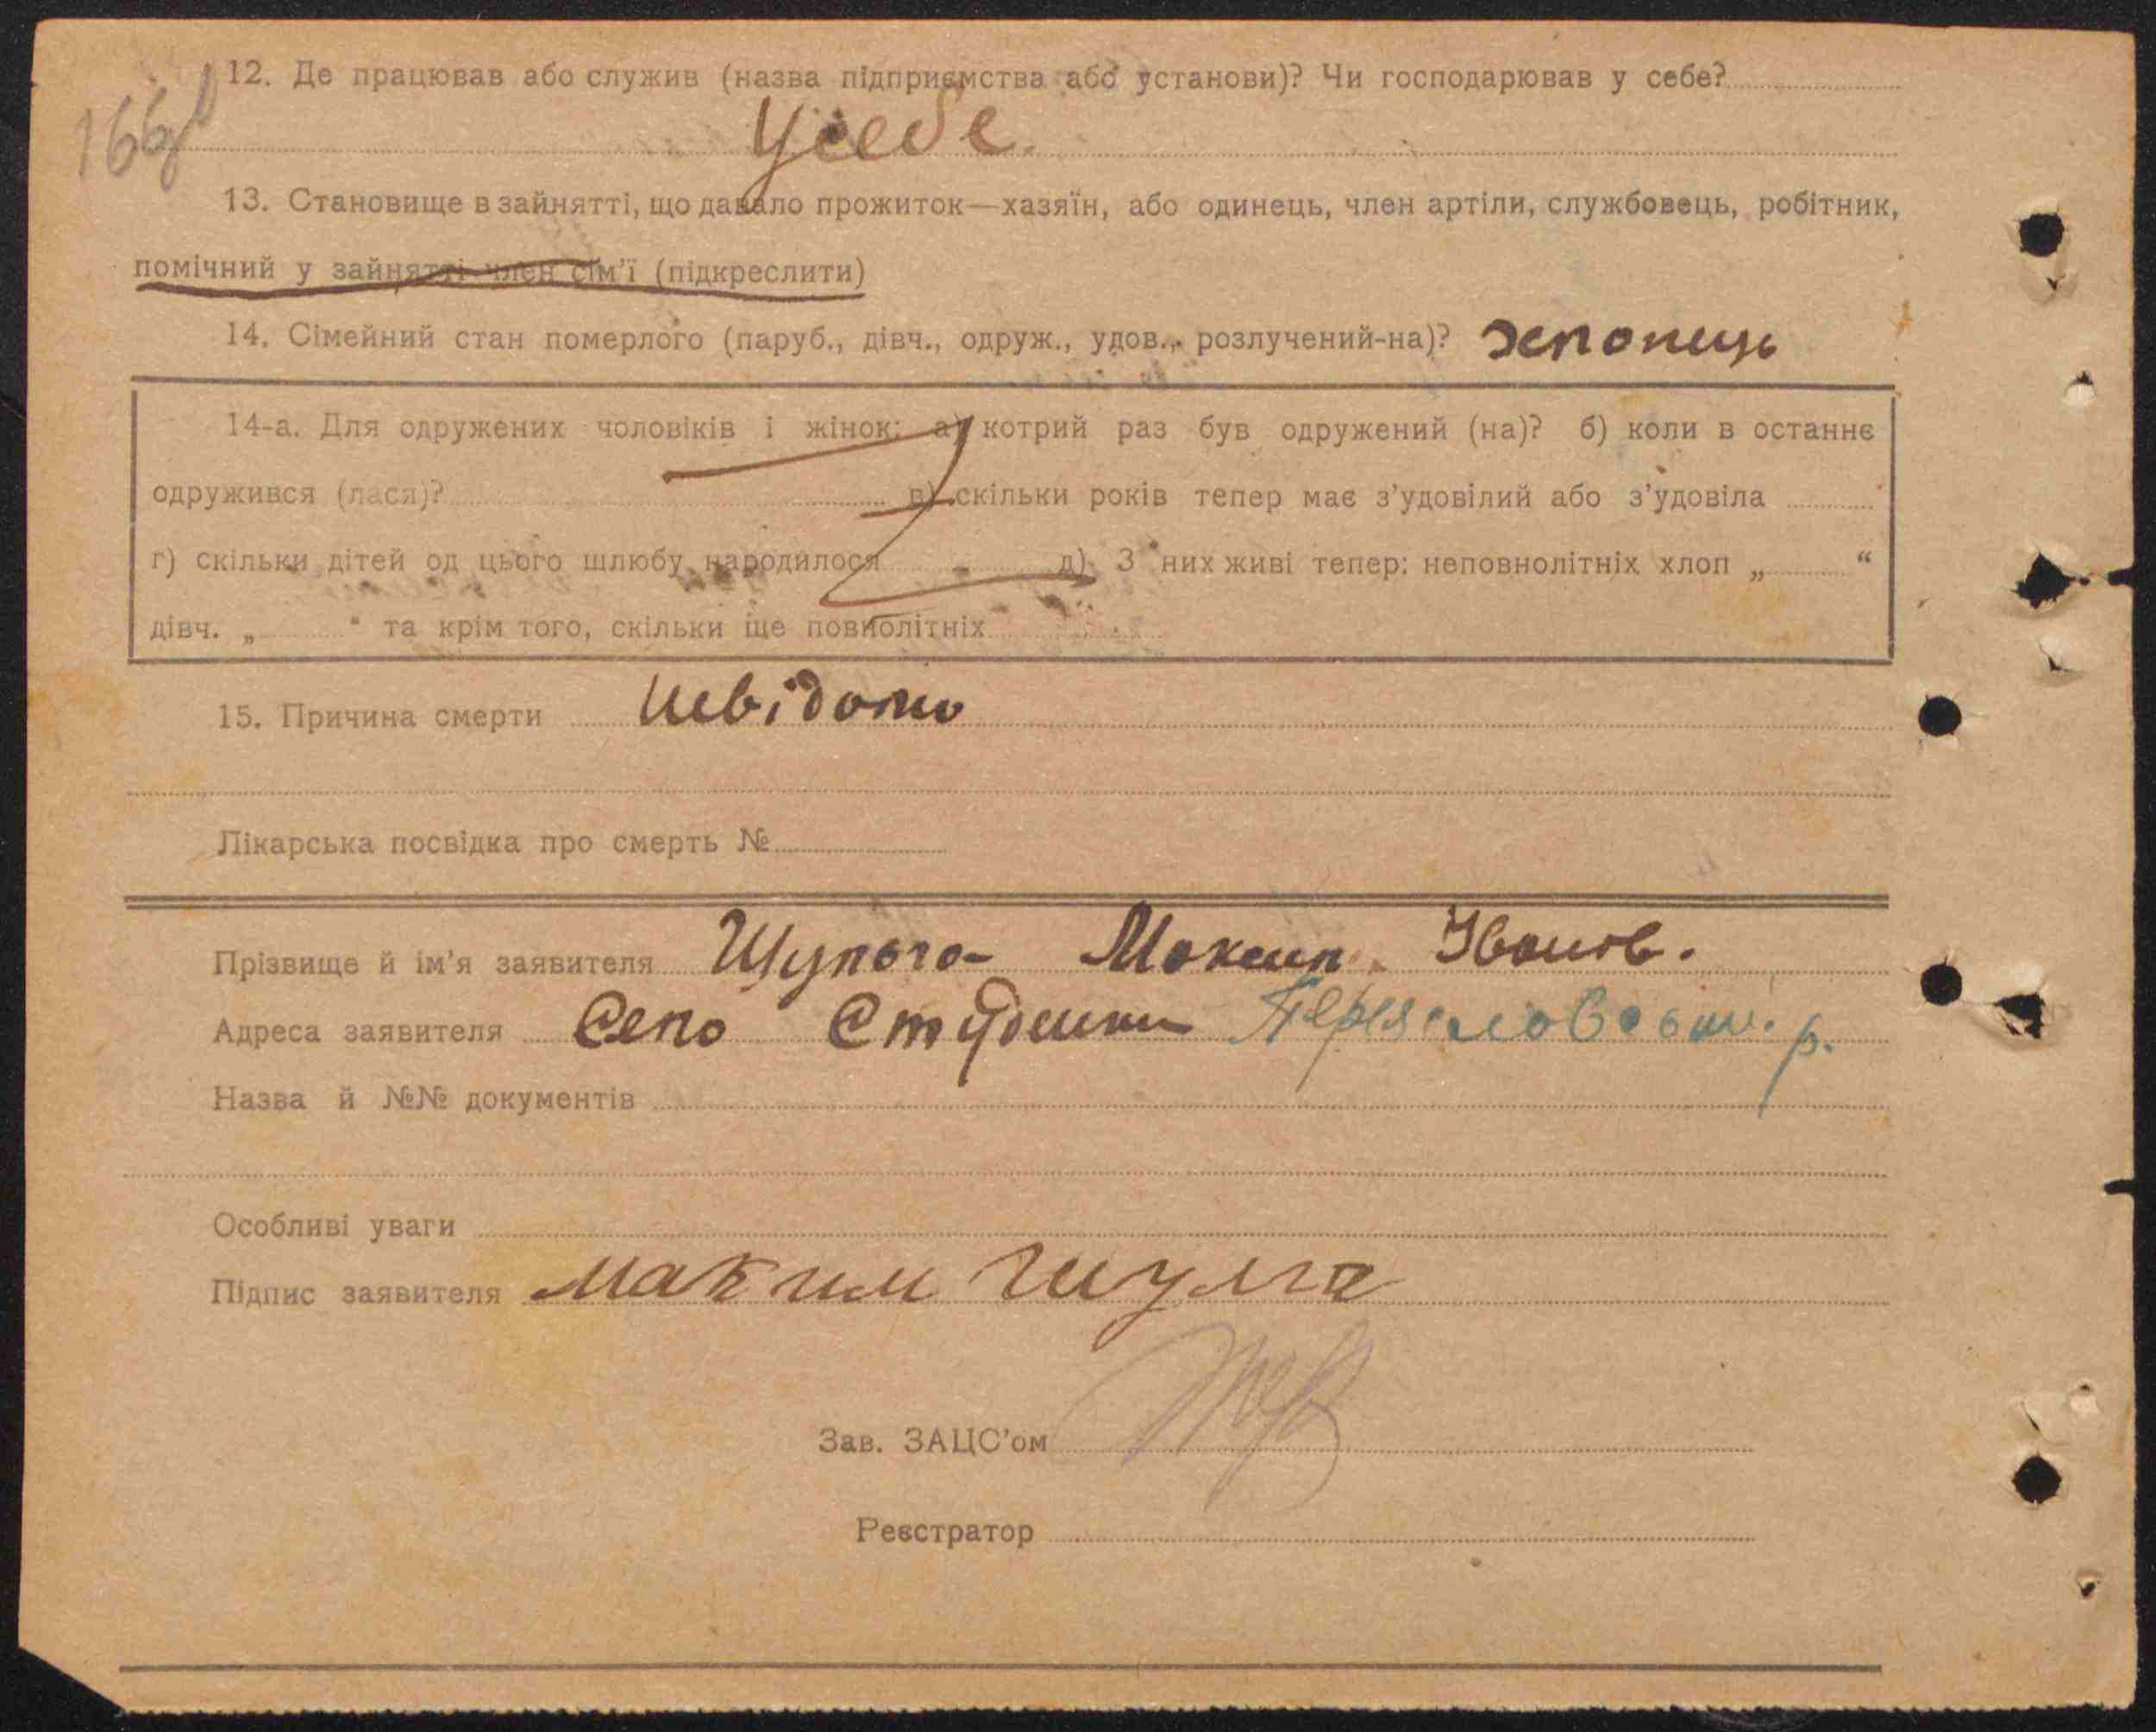 166
12. Де працював або служив (назва підприємства або установи)? Чи господарював у себе?
У себе.
13. Становище в зайнятті, що давало прожиток—хазяїн, або одинець, член артіли, службовець, робітник,
помічний у зайнятті член сім'ї (підкреслити)
14. Сімейний стан померлого (паруб., дівч., одруж., удов., розлучений-на)? Хлопець
14-а. Для одружених чоловіків і жінок: а) котрий раз був одружений (на)? б) коли в останнє
одружився (лася)? в) скільки років тепер має з'удовілий або з'удовіла
г) скільки дітей од цього шлюбу народилося д) З них живі тепер: неповнолітніх хлоп „ “
дівч. „ “ та крім того, скільки ще повнолітніх
15. Причина смерти Невідомо
Лікарська посвідка про смерть №
Прізвище й ім'я заявителя Шульга Максим Іванов.
Адреса заявителя Село Студенки Переяславськ. р.
Назва й №№ документів
Особливі уваги
Підпис заявителя Маким Шулга
Зав. ЗАЦС'ом
Реєстратор